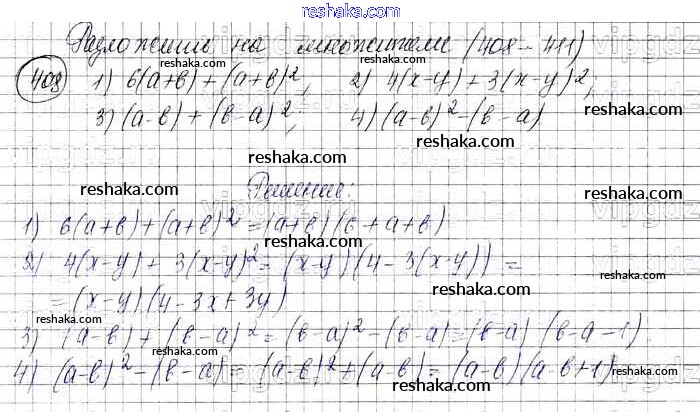 reshaka.com
Разложить на множители (408 - 411)
reshaka.com reshaka.com
408 1) 6(a+b)+(a+b)², 2) 4(x-y)+3(x-y)²;
reshaka.com reshaka.com
3) (a-b)+(b-a)²; 4) (a-b)²-(b-a)
reshaka.com reshaka.com
reshaka.com
Решение:
reshaka.com reshaka.com
1) 6(a+b)+(a+b)²=(a+b)(6+a+b)
reshaka.com
2) 4(x-y)+3(x-y)²=(x-y)(4-3(x-y))=
reshaka.com reshaka.com
=(x-y)(4-3x+3y)
reshaka.com reshaka.com
3) (a-b)+(b-a)²=(b-a)²-(b-a)=(b-a)(b-a-1)
reshaka.com
4) (a-b)²-(b-a)=(a-b)²+(a-b)=(a-b)(a-b+1)
reshaka.com reshaka.com
reshaka.com